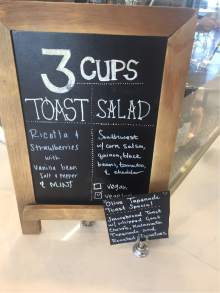 3 CUPS
TOAST
Ricotta &
Strawberries
with
Vanilla bean
Salt & pepper
& MINT
SALAD
Southwest
w/ corn salsa,
quinoa, black
beans, tomato,
& cheddar
vegan
Olive Tapenade
Toast Special
Sourdough Toast
w/ whipped Goat
Cheese, Kalamata
Tapenade and
Roasted